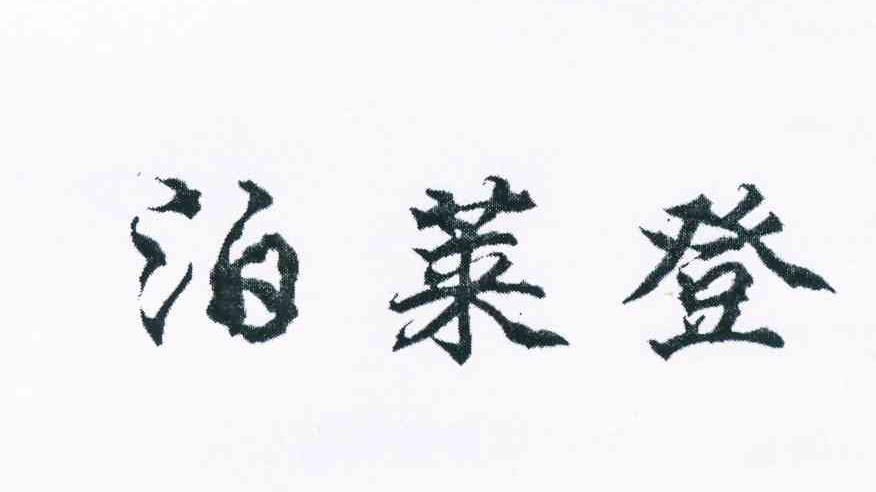 泊莱登